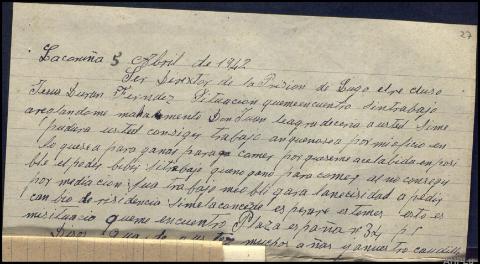 27
La coruña 5 Abril de 1942
Ser Director de la Prision de Lugo el re cluso
Jesus Duran Situacion quemeencuentro sintrabajo
Don Juan leagradeceria austed sime
pudiera usted consigir trabajo anquenosea por mioficio en
lo quesea para ganar para comer porqueseme acelabida en posi
ble el poder bibir sitrabajo queno gano para comer si no consegu
por mediacion sulla trabajo meobligara lanecesidad a pedir
can bio de residencia simelaconcede esperare estemes esto es
misituacio queme encuentro Plaza españa nº 34
Dios muchos años y anuestro caudillo